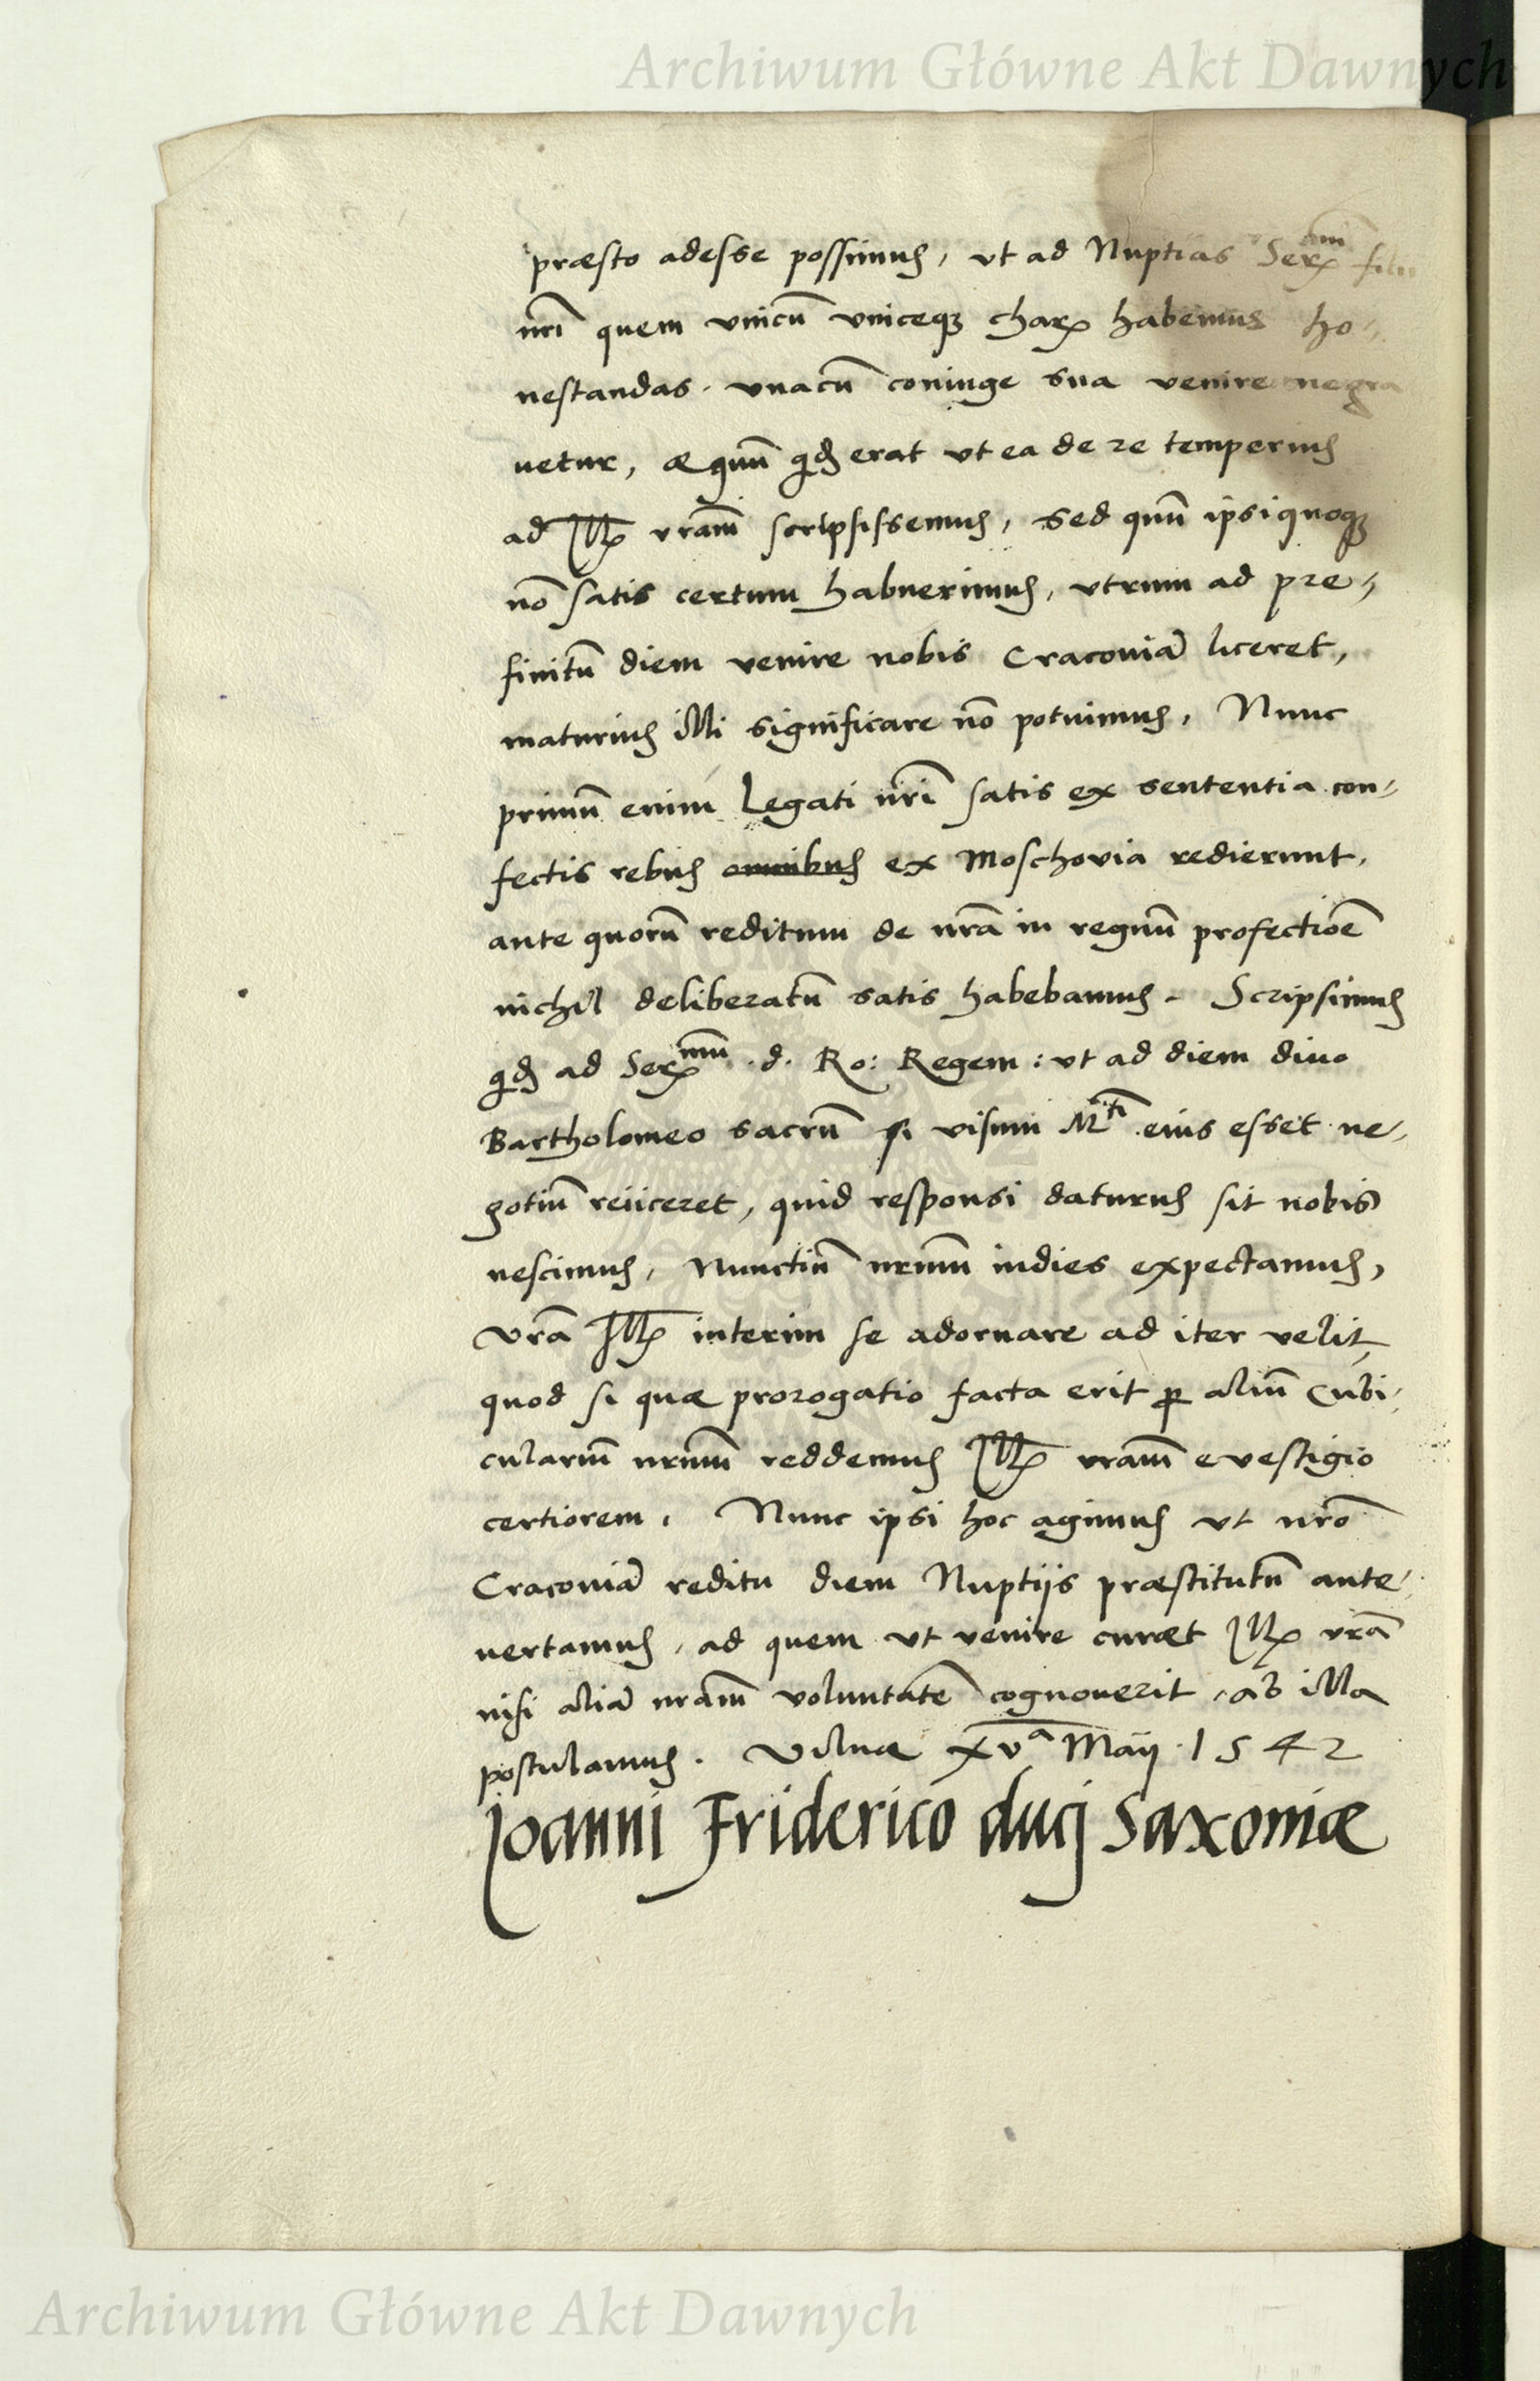 Archiwum Główne Akt Dawnych
præsto adesse possimus, ut ad Nuptias Ser^mi filii
nr̃i quem vnicũ vniceq; char̃ habemus ho-
nestandas. vnacũ coniuge sua venire negra
uetur, æquũ qd erat vt ea de re temperius
ad Ill̃ vram̃ scripsissemus, sed quũ ipsi quoq;
nõ satis certum habuerimus, vtrum ad pre-
finitũ diem venire nobis Cracouiã liceret,
maturius illi significare nõ potuimus, Nunc
primũ enim Legati nr̃i satis ex sententia con-
fectis rebus omnibus ex Moschovia redierunt,
ante quorũ reditum de nrã in regnũ profectiõe
nichil deliberatũ satis habebamus. Scripsimus
qd ad Ser^mum .d. Ro: Regem: ut ad diem diuo
Bartholomeo sacrũ si visum M^ti eius esset ne-
gotiũ reiiceret, quid responsi daturus sit nobis
nescimus, Nunctiũ nrum̃ indies expectamus,
Vrã Ill̃ interim se adornare ad iter velit,
quod si quæ prorogatio facta erit p aliũ Cubi-
cularium̃ nrum̃ reddemus Ill̃ vram̃ e vestigio
certiorem, Nunc ipsi hoc agimus ut nrõ
Cracouiã reditu diem Nuptijs præstitutũ ante-
uertamus, ad quem ut venire curæt Ill̃ vrã
nisi aliã nram̃ voluntatẽ cognouerit, ab illa
postulamus. Vilnæ xv^a Maij 1542
Joanni Friderico ducj Saxoniæ
Archiwum Główne Akt Dawnych